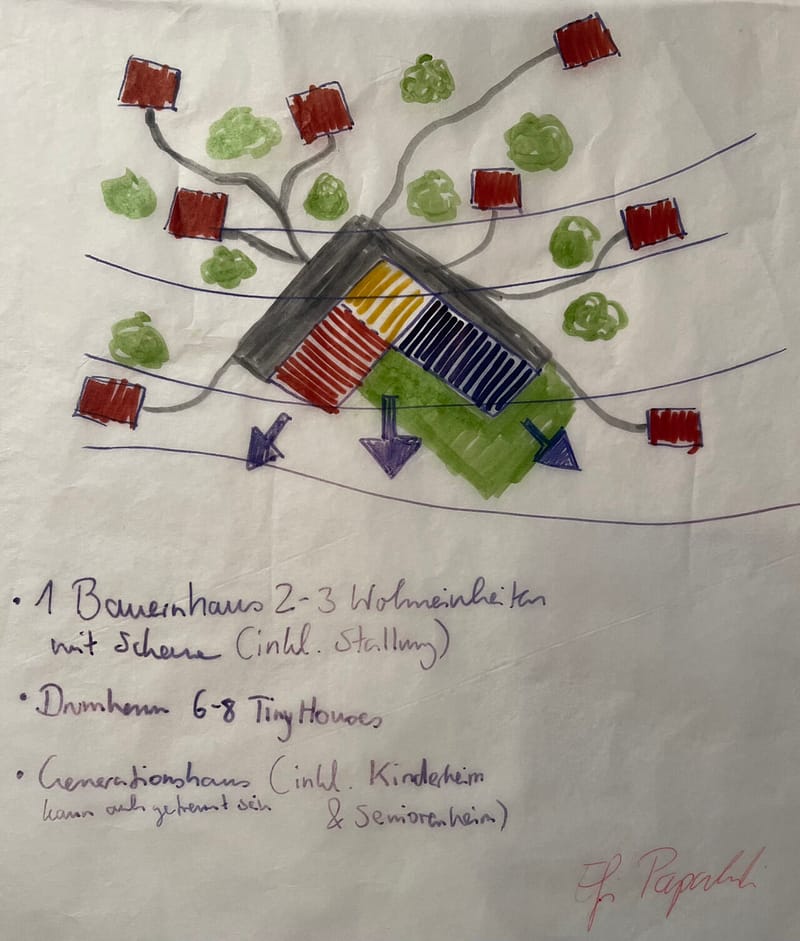 • 1 Bauernhaus 2-3 Wohneinheiten
mit Scheune (inkl. Stallung)
• Drumherum 6-8 Tiny Houses
• Generationshaus (inkl. Kinderheim
kann auch getrennt sein & Seniorenheim)